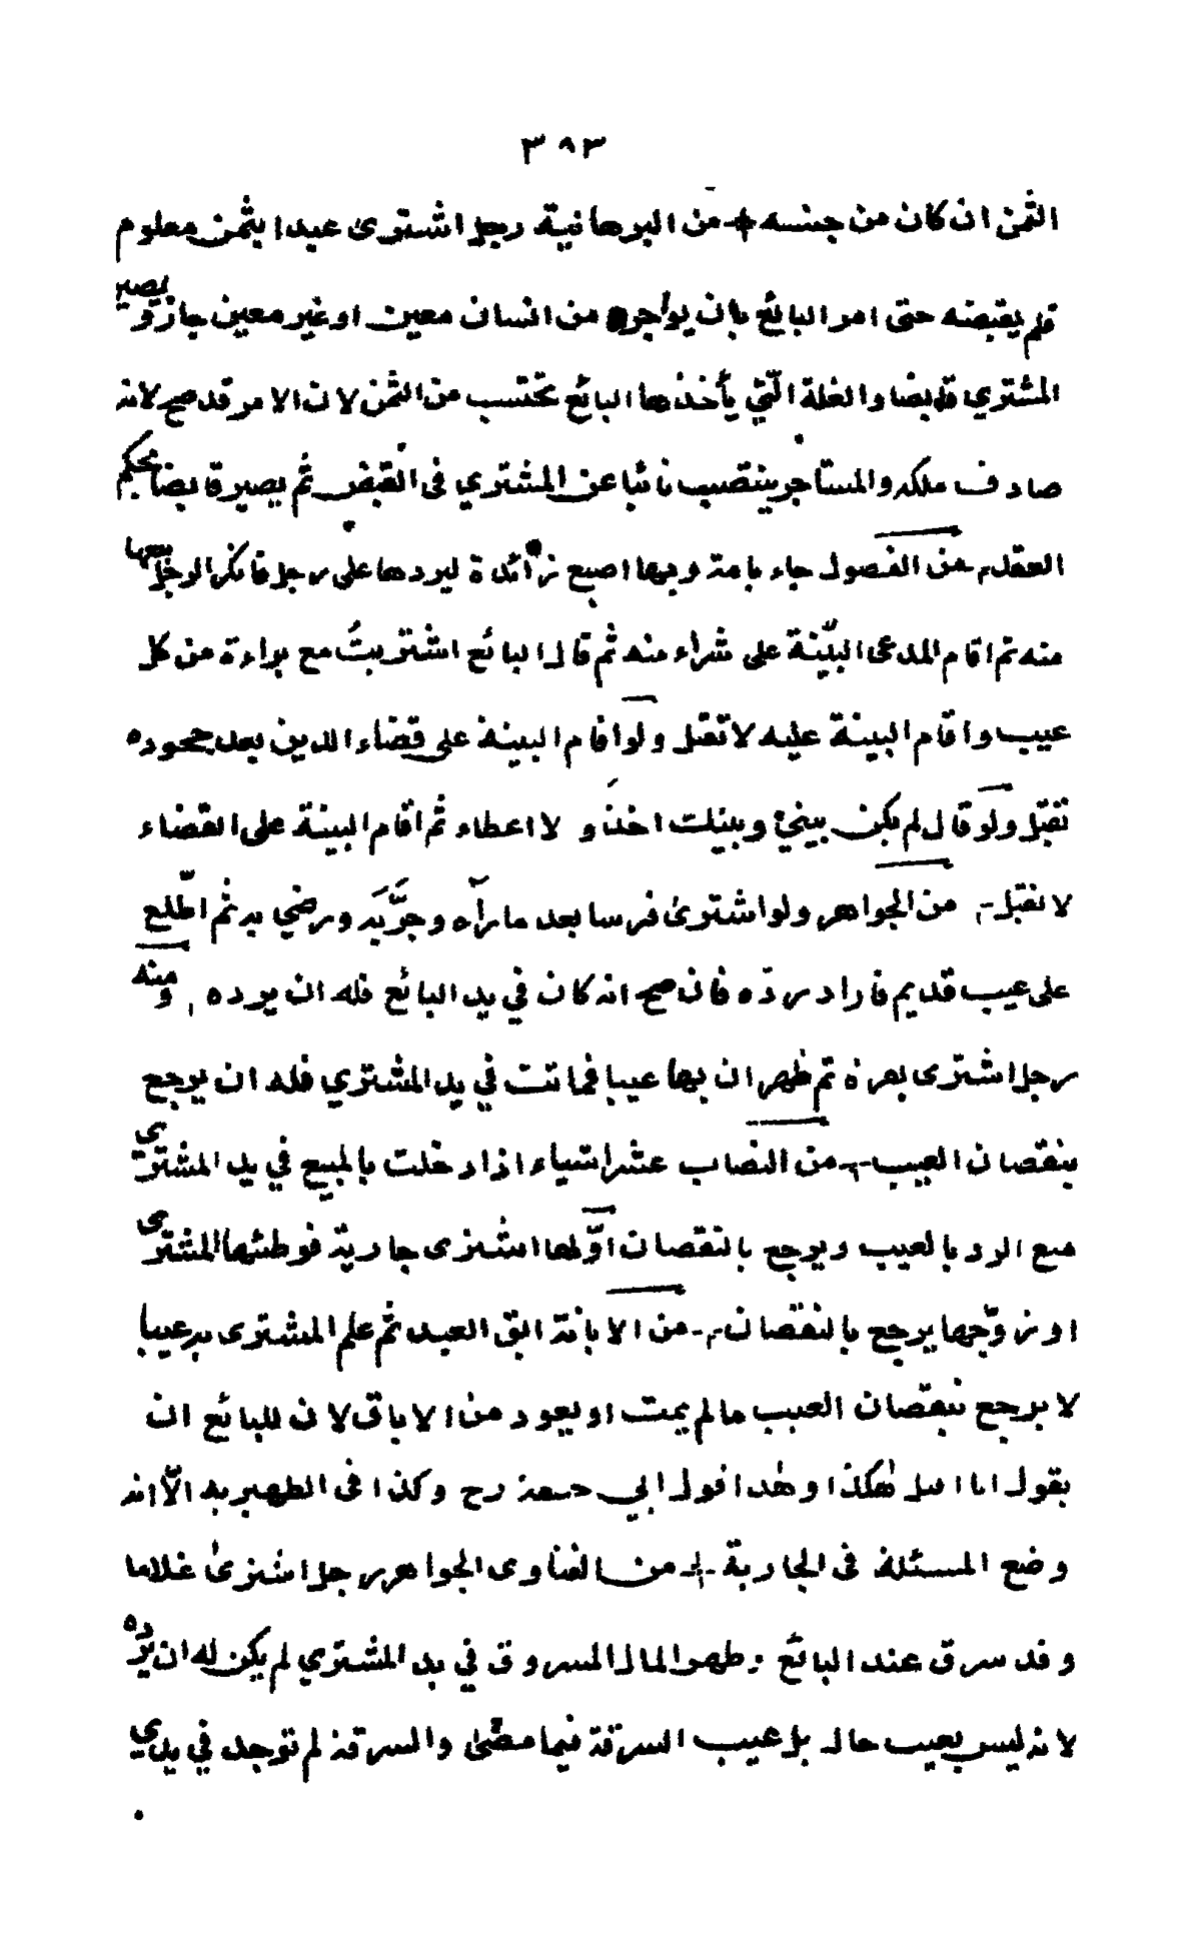 ٣٨٣
الثمن ان كان من جنسه من البرهانية رجل اشترى عبدا بثمن معلوم
فلم يقبضه حتى امر البائع بان يواجره من انسان معين او غير معين جاز ويصير
المشتري قابضا والغلة الّتي يأخذها البائع تحتسب من الثمن لان الامر قد صح لانه
صادف ملكه والمستاجر ينتصب نائبا عن المشتري فى القبض ثم يصير قابضا بحكم
العقد من الفصول جاء بامة وبها اصبع زائدة ليردها على رجل فانكر الرجل بيعها
منه ثم اقام المدعى البيّنة على شراء منه ثم قال البائع اشتريتُ مع براءة من كل
عيب واقام البينة عليه لا تقبل ولو اقام البينة على قضاء الدين بعد جحوده
تقبل ولو قال لم يكن بيني وبينك اخذ ولا اعطاء ثم اقام البينة على القضاء
لا تقبل من الجواهر ولو اشترى فرسا بعد ما رآه وجرّبه ورضي به ثم اطّلع
على عيب قديم فاراد ردّه فان صح انه كان في يد البائع فله ان يرده ومنه
رجل اشترى بقرة ثم ظهر ان بها عيبا فماتت في يد المشتري فله ان يرجع
بنقصان العيب من النصاب عشر اشياء اذا دخلت بالمبيع في يد المشترى
منع الرد بالعيب ويرجع بالنقصان اوّلها اشترى جارية فوطئها المشترى
او زوّجها يرجع بالنقصان من الابانة ابق العبد ثم علم المشترى به عيبا
لا يرجع بنقصان العيب مالم يمت او يعود من الاباق لان للبائع ان
يقول انا اقبل هكذا وهذا قول ابي حنيفة رح وكذا فى الظهيرية الّا انه
وضع المسئلة فى الجارية من الفتاوى الجواهر رجل اشترى غلاما
وقد سرق عند البائع وظهر المال المسروق في يد المشتري لم يكن له ان يرده
لانه ليس بعيب حال بل عيب السرقة فيما مضى والسرقة لم توجد في يدي